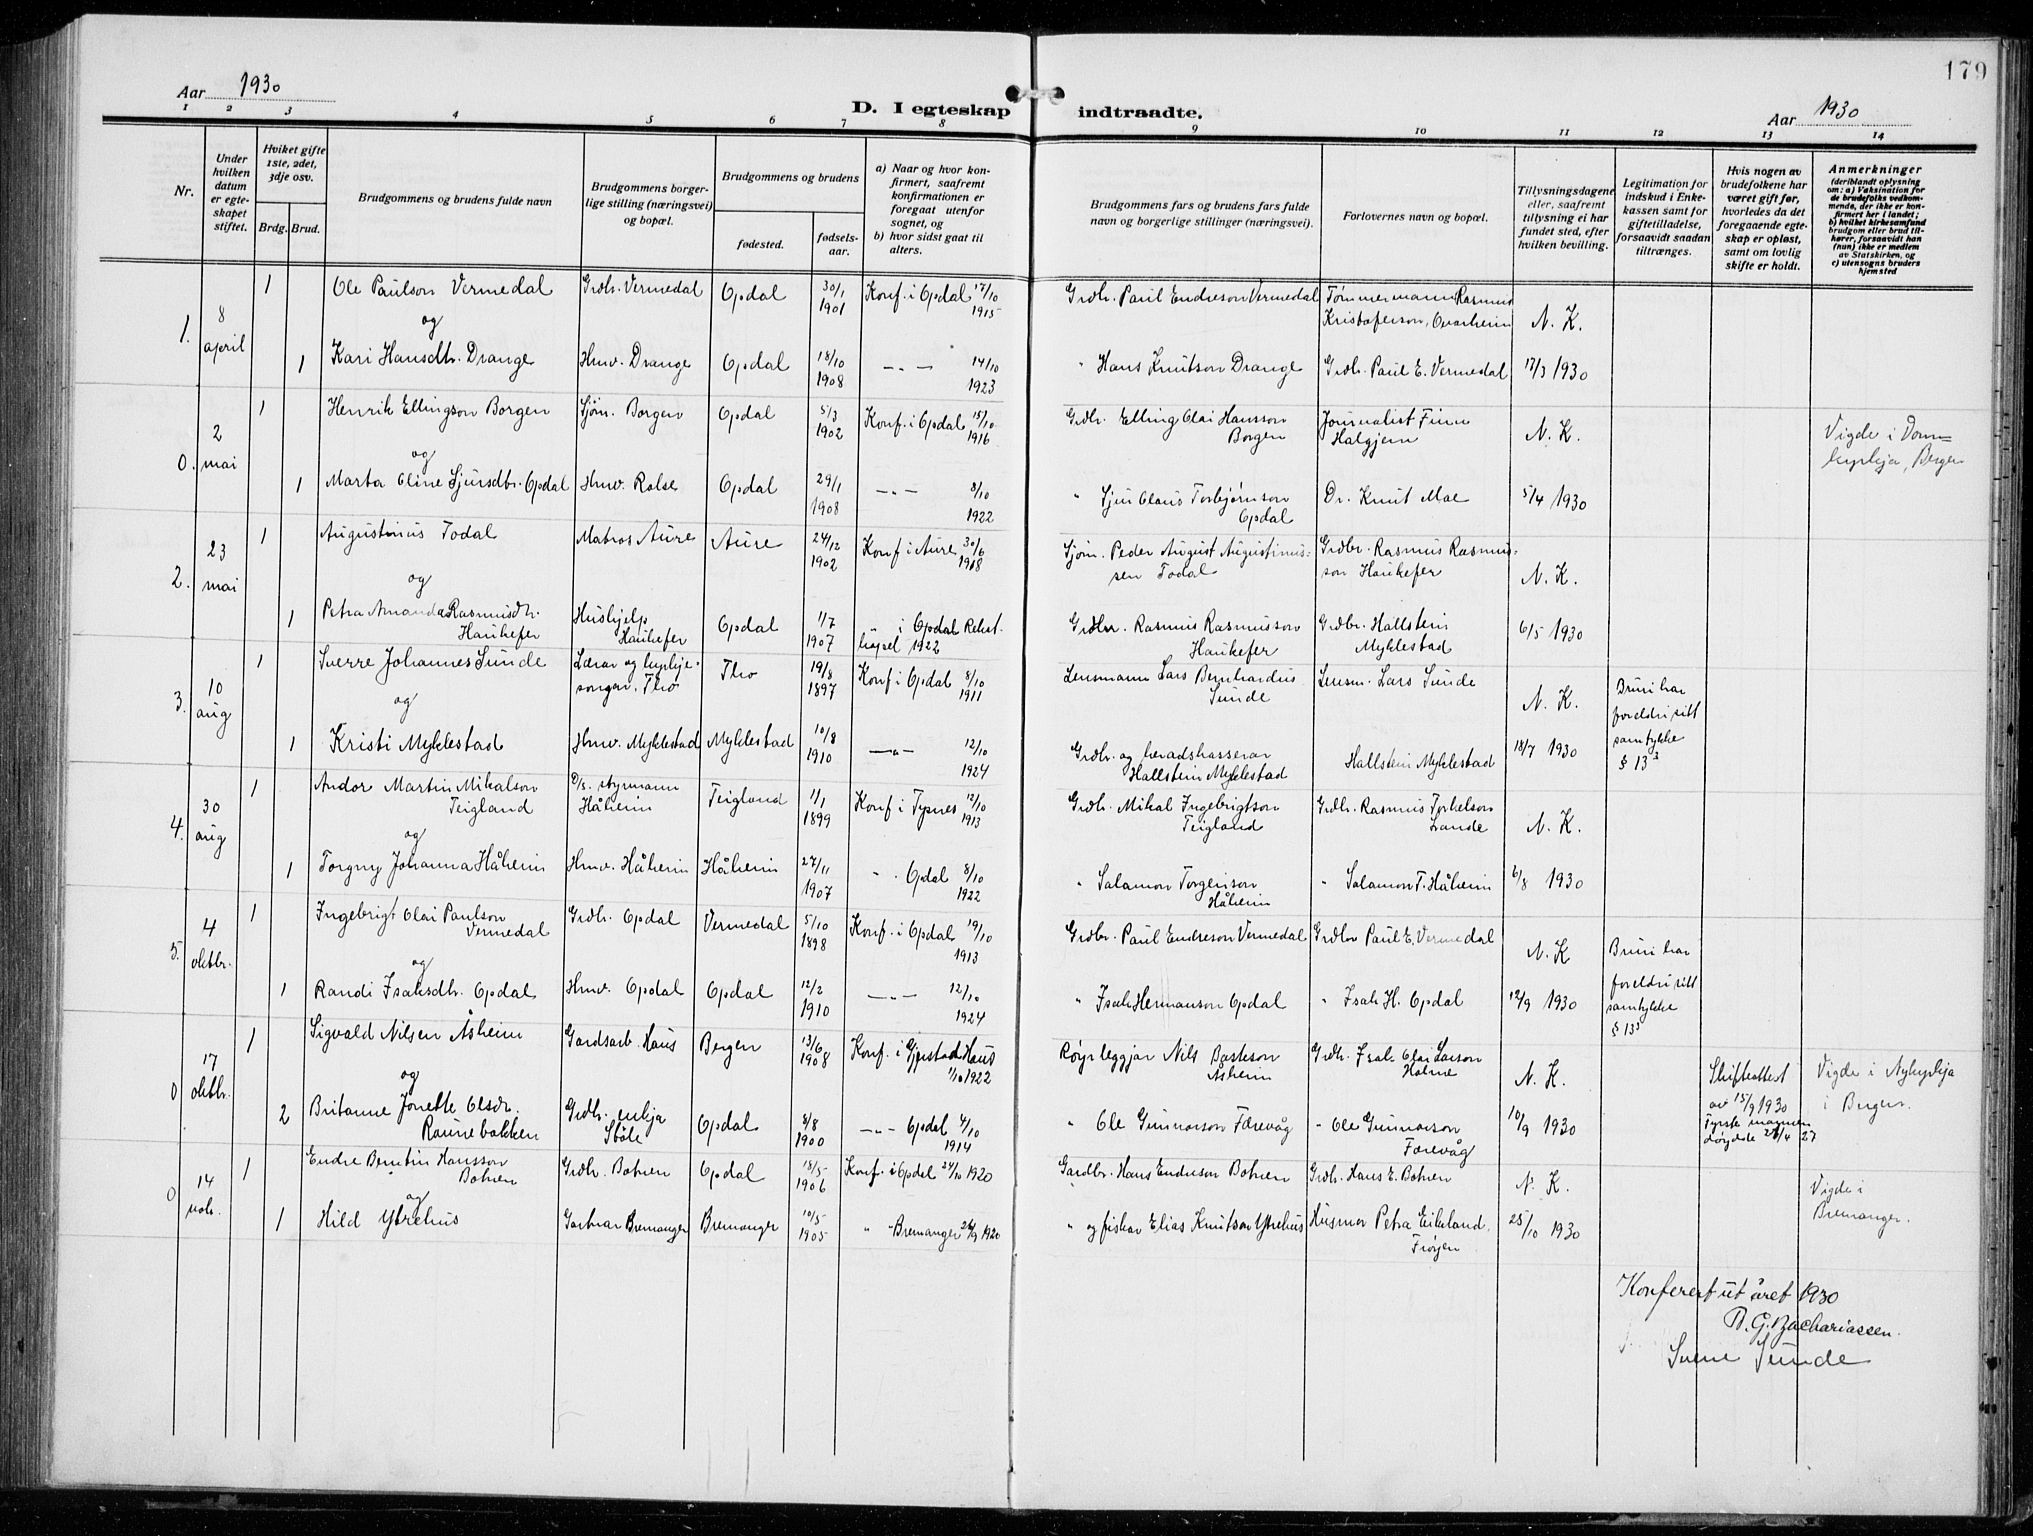 179
Aar 1930
D. I egteskap indtraadte.
Aar 1930
1 2 3 4 5 6 7 8 9 10 11 12 13 14
Nr.
Under hvilken datum er egte-skapet stiftet.
Hviket gifte 1ste, 2det, 3dje osv.
Brdg. Brud.
Brudgommens og brudens fulde navn
Brudgommens borger-lige stilling (næringsvei) og bopæl.
Brudgommens og brudens
fødested.
fødsels-aar.
a) Naar og hvor kon-firmert, saafremt konfirmationen er foregaat utenfor sognet, og
b) hvor sidst gaat til alters.
Brudgommens fars og brudens fars fulde navn og borgerlige stillinger (næringsvei).
Forlovernes navn og bopæl.
Tillysningsdagene eller, saafremt tillysning ei har fundet sted, efter hvilken bevilling.
Legitimation for indskud i Enke-kassen samt for giftetilladelse, forsaavidt saadan tiltrænges.
Hvis nogen av brudefolkene har været gift før, hvorledes da det foregaaende egte-skap er opløst, samt om lovlig skifte er holdt.
Anmerkninger
(deriblandt oplysning om: a) Vaksination for de brudefolks vedkom-mende, der ikke er kon-firmert her i landet; b) hvilket kirkesamfund brudgom eller brud til-hører, forsaavidt han (hun) ikke er medlem av Statskirken, og c) utensogns bruders hjemsted
1. 8 april 1 Ole Paulson Vermedal Grdbr. Vermedal Opdal 30/1 1901 Konf. i Opdal 17/10 1915 Grdbr. Paul Endreson Vermedal Tømmermann Rasmus Kristoferson, Ovarheim N. K.
og
1 Kari Hansdtr. Drange Hmv. Drange Opdal 18/10 1908 -"- 14/10 1923 " Hans Knutson Drange Grdbr. Paul E. Vermedal 17/3 1930
0. 2 mai 1 Henrik Ellingson Borgen Sjøm. Borgen Opdal 5/3 1902 Konf. i Opdal 15/10 1916 Grdbr. Elling Olai Hansson Borgen Journalist Finn Halgjem N. K. Vigde i Dom=kyrkja, Bergen
og
1 Marta Oline Sjursdtr. Opdal Hmv. Rolse Opdal 29/1 1908 -"- 8/10 1922 " Sjur Claus Torbjørnson Opdal Dr. Knut Moe 5/4 1930
2. 23 mai 1 Augustinus Todal Matros Aure Aure 24/12 1902 Konf i Aure 30/6 1918 Sjøm. Peder August Augustinus-sen Todal Grdbr. Rasmus Rasmus-son Haukefer N. K.
og
1 Petra Amanda Rasmusdtr. Haukefer Hushjelp Haukefer Opdal 1/7 1907 i Opdal 1922 Grdbr. Rasmus Rasmusson Haukefer Grdbr. Hallstein Myklestad 6/5 1930
3. 10 aug 1 Sverre Johannes Sunde Lærar og kyrkje-songar. Flo Flo 19/8 1897 Konf i Opdal 8/10 1911 Lensmann Lars Bernhardus Sunde Lensm. Lars Sunde N. K. Bruri har foreldri sitt samtykke § 13³
og
1 Kristi Myklestad Hmv. Myklestad Myklestad 10/8 1910 -"- 12/10 1924 Grdbr. og heradskasserar Hallstein Myklestad Hallstein Myklestad 18/7 1930
4. 30 aug 1 Andor Martin Mikalson Teigland D/s. styrmann Håheim Teigland 1/1 1899 Konf i Tysnes 12/10 1913 Grdbr. Mikal Ingebrigtson Teigland Grdbr. Rasmus Torkelson Lande N. K.
og
1 Torgny Johanna Håheim Hmv. Håheim Håheim 27/11 1907 " Opdal 8/10 1922 " Salamon Torgerson Håheim " Salamon T. Håheim 6/8 1930
5. 4 oktbr. 1 Ingebrigt Olai Paulson Vermedal Grdbr. Opdal Vermedal 5/10 1898 Konf. i Opdal 19/10 1913 Grdbr. Paul Endreson Vermedal Grdbr Paul E. Vermedal N. K Bruri har foreldri sitt samtykke § 13³
og
1 Randi Isaksdtr. Opdal Hmv. Opdal Opdal 12/2 1910 -"- 12/10 1924 " Isak Hermanson Opdal " Isak H. Opdal 12/9 1930
0 17 oktbr. 1 Sigvald Nilsen Åsheim Gardsarb. Haus Bergen 13/6 1908 Konf. i Gjerstad Haus 1/10 1922 Røyrleggjar Nils Åsheim Grdbr. Isak Olai Larson Holme N. K. Skifteattest av 15/9 1930 Fyrste mannen døydde 27/4 27 Vigde i Nykyrkja i Bergen.
og
2 Britanne Jonette Olsdtr. Raunebakken Grdbr. enkja Støle Opdal 8/8 1900 -"- Opdal 4/10 1914 " Ole Gunnarson Færevåg " Ole Gunnarson Færevåg 10/9 1930
0 14 nov. 1 Endre Berntin Hansson Botnen Grdbr. Botnen Opdal 18/5 1906 Konf. i Opdal 24/10 1920 Gardbr. Hans Endreson Botnen Grdbr. Hans E. Botnen N. K. Vigde i Bremanger.
og
1 Hild Ytrehus Bremanger Bremanger 10/5 1905 " Bremanger 26/9 1920 " og fiskar Elias Knutson Ytrehus Husmor Petra Eikeland, Frøyen 25/10 1930
Konferert ut året 1930
B. G. Zachariassen.
Sverre Sunde